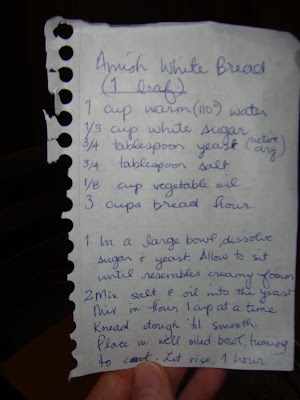 Amish White Bread
(1 loaf)
1 cup warm (110°) water
1/3 cup white sugar
3/4 tablespoon yeast (active dry)
3/4 tablespoon salt
1/8 cup vegetable oil
3 cups bread flour.
1. In a large bowl, dissolve
sugar & yeast. Allow to sit
until resembles creamy foam
2 Mix salt & oil into the yeast
Mix in flour 1 cup at a time
Knead dough 'til smooth.
Place in well oiled bowl, turning
to coat. Let rise, 1 hour